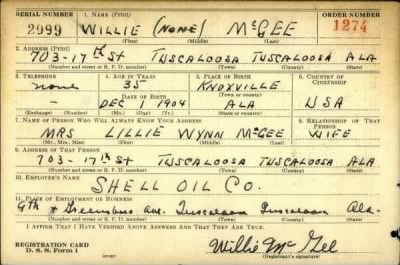 SERIAL NUMBER 1. NAME (Print) ORDER NUMBER
2999 WILLIE (NONE) McGEE 1274
(First) (Middle) (Last)
2. ADDRESS (Print)
703-17th St TUSCALOOSA TUSCALOOSA ALA
(Number and street or R. F. D. number) (Town) (County) (State)
3. TELEPHONE 4. AGE IN YEARS 5. PLACE OF BIRTH 6. COUNTRY OF CITIZENSHIP
none 35 KNOXVILLE
DATE OF BIRTH (Town or county)
— DEC 1 1904 ALA USA
(Exchange) (Number) (Mo.) (Day) (Yr.) (State or country)
7. NAME OF PERSON WHO WILL ALWAYS KNOW YOUR ADDRESS 8. RELATIONSHIP OF THAT PERSON
MRS LILLIE WYNN McGEE WIFE
(Mr., Mrs., Miss) (First) (Middle) (Last)
9. ADDRESS OF THAT PERSON
703-17th St TUSCALOOSA TUSCALOOSA ALA
(Number and street or R. F. D. number) (Town) (County) (State)
10. EMPLOYER'S NAME
SHELL OIL CO.
11. PLACE OF EMPLOYMENT OR BUSINESS
9th & Greensboro Ave. Tuscaloosa Tuscaloosa Ala.
(Number and street or R. F. D. number) (Town) (County) (State)
I AFFIRM THAT I HAVE VERIFIED ABOVE ANSWERS AND THAT THEY ARE TRUE.
REGISTRATION CARD
D. S. S. Form 1
Willie McGee
(Registrant's signature)